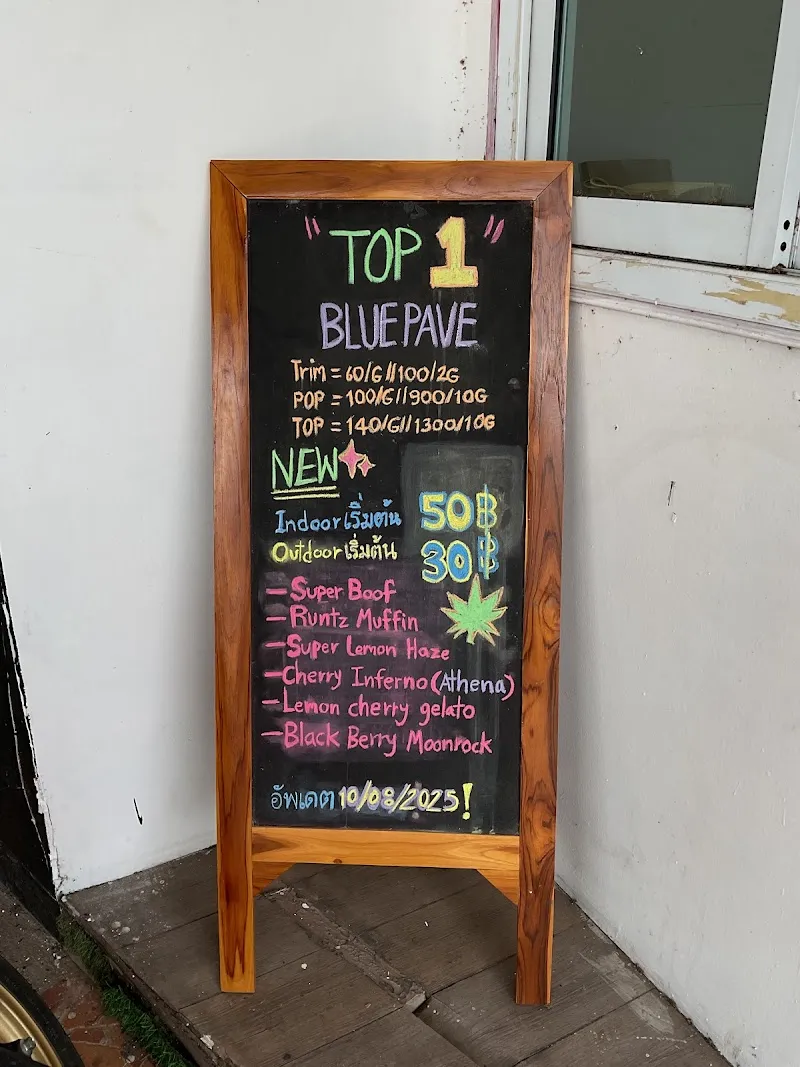 "TOP 1"
BLUE PAVE
Trim = 60/G//100/2G
POP = 100/G//900/10G
TOP = 140/G//1300/10G
NEW
Indoor เริ่มต้น 50฿
Outdoor เริ่มต้น 30฿
- Super Boof
- Runtz Muffin
- Super Lemon Haze
- Cherry Inferno (Athena)
- Lemon cherry gelato
- Black Berry Moonrock
อัพเดต 10/08/2025!